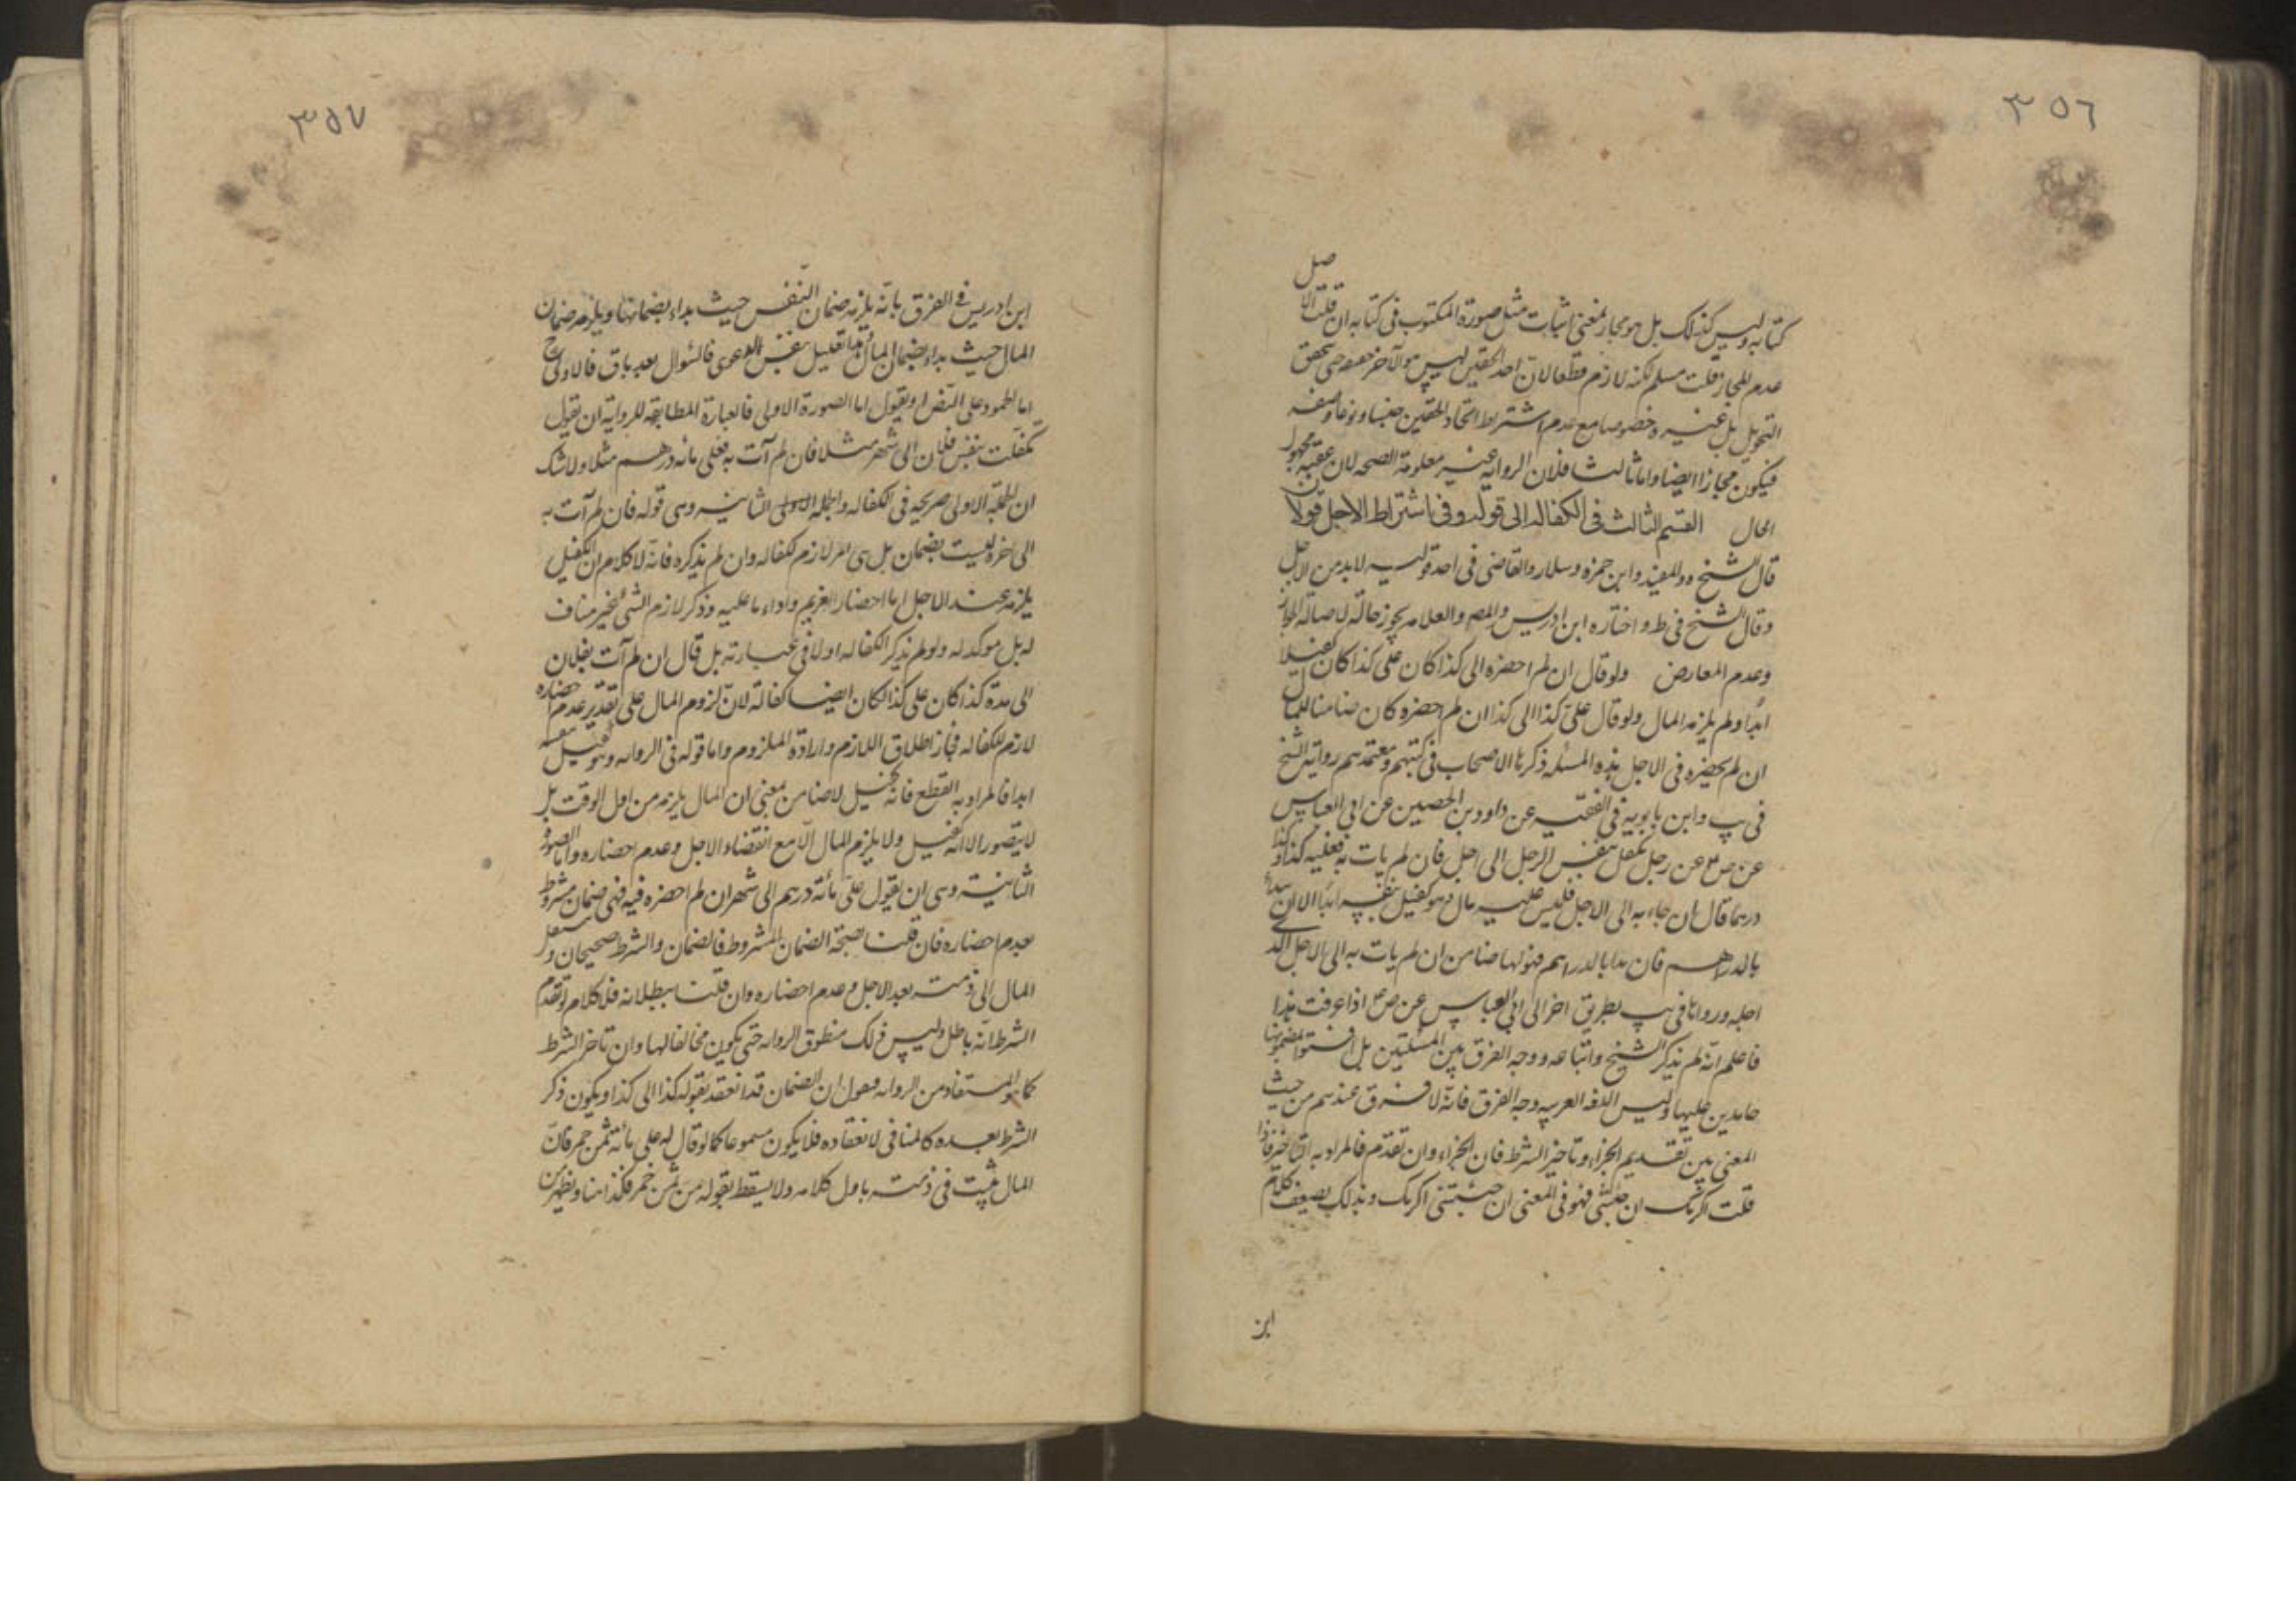 ٣٥٦
كتابه وليس كذلك بل هو مجاز بمعنى اثبات مثل صورة المكتوب فى كتابه ان قلت الاصل
عدم المجاز قلت مسلم لكنه لازم قطعا لان احد الحقين ليس هو الآخر حتى تحقق
التحويل بل غيره وخصوصا مع عدم اشتراط اتحاد الحقين جنسا ونوعا وصفه
فيكون مجازا ايضا واما ثالثا فلان الرواية غير معلومة الصحه لان عقبه مجهول
الحال القسم الثالث فى الكفاله الى قوله وفى اشتراط الاجل قولان
قال الشيخ والمفيد وابن حمزه وسلار والقاضى فى احد قوليه لابد من الاجل
وقال الشيخ فى ط واختاره ابن ادريس والمص والعلامه يجوز حالة لاصالة الجواز
وعدم المعارض ولو قال ان لم احضره الى كذا كان على كذا كان كفيلا
ابدا ولم يلزمه المال ولو قال علىّ كذا الى كذا ان لم احضره كان ضامنا للمال
ان لم يحضره فى الاجل هذه المسئله ذكرها الاصحاب فى كتبهم ومعتمدهم رواية الشيخ
فى يب وابن بابويه فى الفقيه عن داود بن الحصين عن ابى العباس
عن ص ع عن رجل تكفل بنفس الرجل الى اجل فان لم يات به فعليه كذا وكذا
درهما قال ان جاء به الى الاجل فليس عليه مال وهو كفيل بنفسه ابدا الا ان يبداء
بالدراهم فان بدا بالدراهم فهو لها ضامن ان لم يات به الى الاجل الذى
اجله ورواها فى يب بطريق اخر الى ابى العباس عن ص ع اذا عرفت هذا
فاعلم انّه لم يذكر الشيخ واتباعه ووجه الفرق بين المسئلتين بل افتوا بمضمونها
جامدين عليها وليس اللغه العربيه وجه الفرق فانّه لا فرق عندهم من حيث
المعنى بين تقديم الجزاء وتاخير الشرط فان الجزاء وان تقدم فالمراد به التاخر فاذا
قلت اكرمك ان جئتنى فهو فى المعنى ان جئتنى اكرمك وبذلك يضعف كلام
ابن
٣٥٧
ابن ادريس فى الفرق بانّه يلزمه ضمان النّفس حيث بداء بضمانها ويلزمه ضمان
المال حيث بداء بضمان المال هذا تعليل بنفس الدعوى فالسّوال بعد باق فالاولى ح
اما الجمود على النّص او نقول اما الصورة الاولى فالعبارة المطابقه للرواية ان يقول
تكفلت بنفس فلان الى شهر مثلا فان لم آت به فعلى مائه درهم مثلا ولا شك
ان الجملة الاولى صريحه فى الكفاله والجمله الثانيه وهى قوله فان لم آت به
الى اخره ليست بضمان بل هى امر لازم للكفاله وان لم يذكره فانّه لا كلام ان الكفيل
يلزمه عند الاجل اما احضار الغريم واداء ما عليه وذكر لازم الشئ غير مناف
له بل موكد له ولو لم يذكر الكفاله اولا فى عبارته بل قال ان لم آت بفلان
الى مدة كذا كان على كذا لكان ايضا كفالة لانّ لزوم المال على تقدير عدم احضاره
لازم للكفاله فجاز اطلاق اللازم وارادة الملزوم واما قوله فى الروايه وهو كفيل بنفسه
ابدا فالمراد به القطع فانّه كفيل لا ضامن بمعنى ان المال يلزمه من اول الوقت بل
لا يتصور الا انّه كفيل ولا يلزم المال الّا مع انقضاء الاجل وعدم احضاره واما الصورة
الثانية وهى ان يقول علىّ مائة درهم الى شهر ان لم احضره فيه فهى ضمان مشروط
بعدم احضاره فان قلنا بصحّة الضمان المشروط فالضمان والشرط صحيحان وينتقل
المال الى ذمته بعد الاجل وعدم احضاره وان قلنا ببطلانه فلا كلام لو تقدم
الشرط انّه باطل وليس ذلك منطوق الروايه حتى يكون مخالفا لها وان تاخر الشرط
كما هو المستفاد من الروايه فنقول ان الضمان قد انعقد بقوله كذا الى كذا ويكون ذكر
الشرط بعده كالمنافى لانعقاده فلا يكون مسموعا كما لو قال له على مائة ثمن خمر فانّ
المال يثبت فى ذمته باول كلامه ولا يسقط بقوله من ثمن خمر فكذا هنا ويظهر من